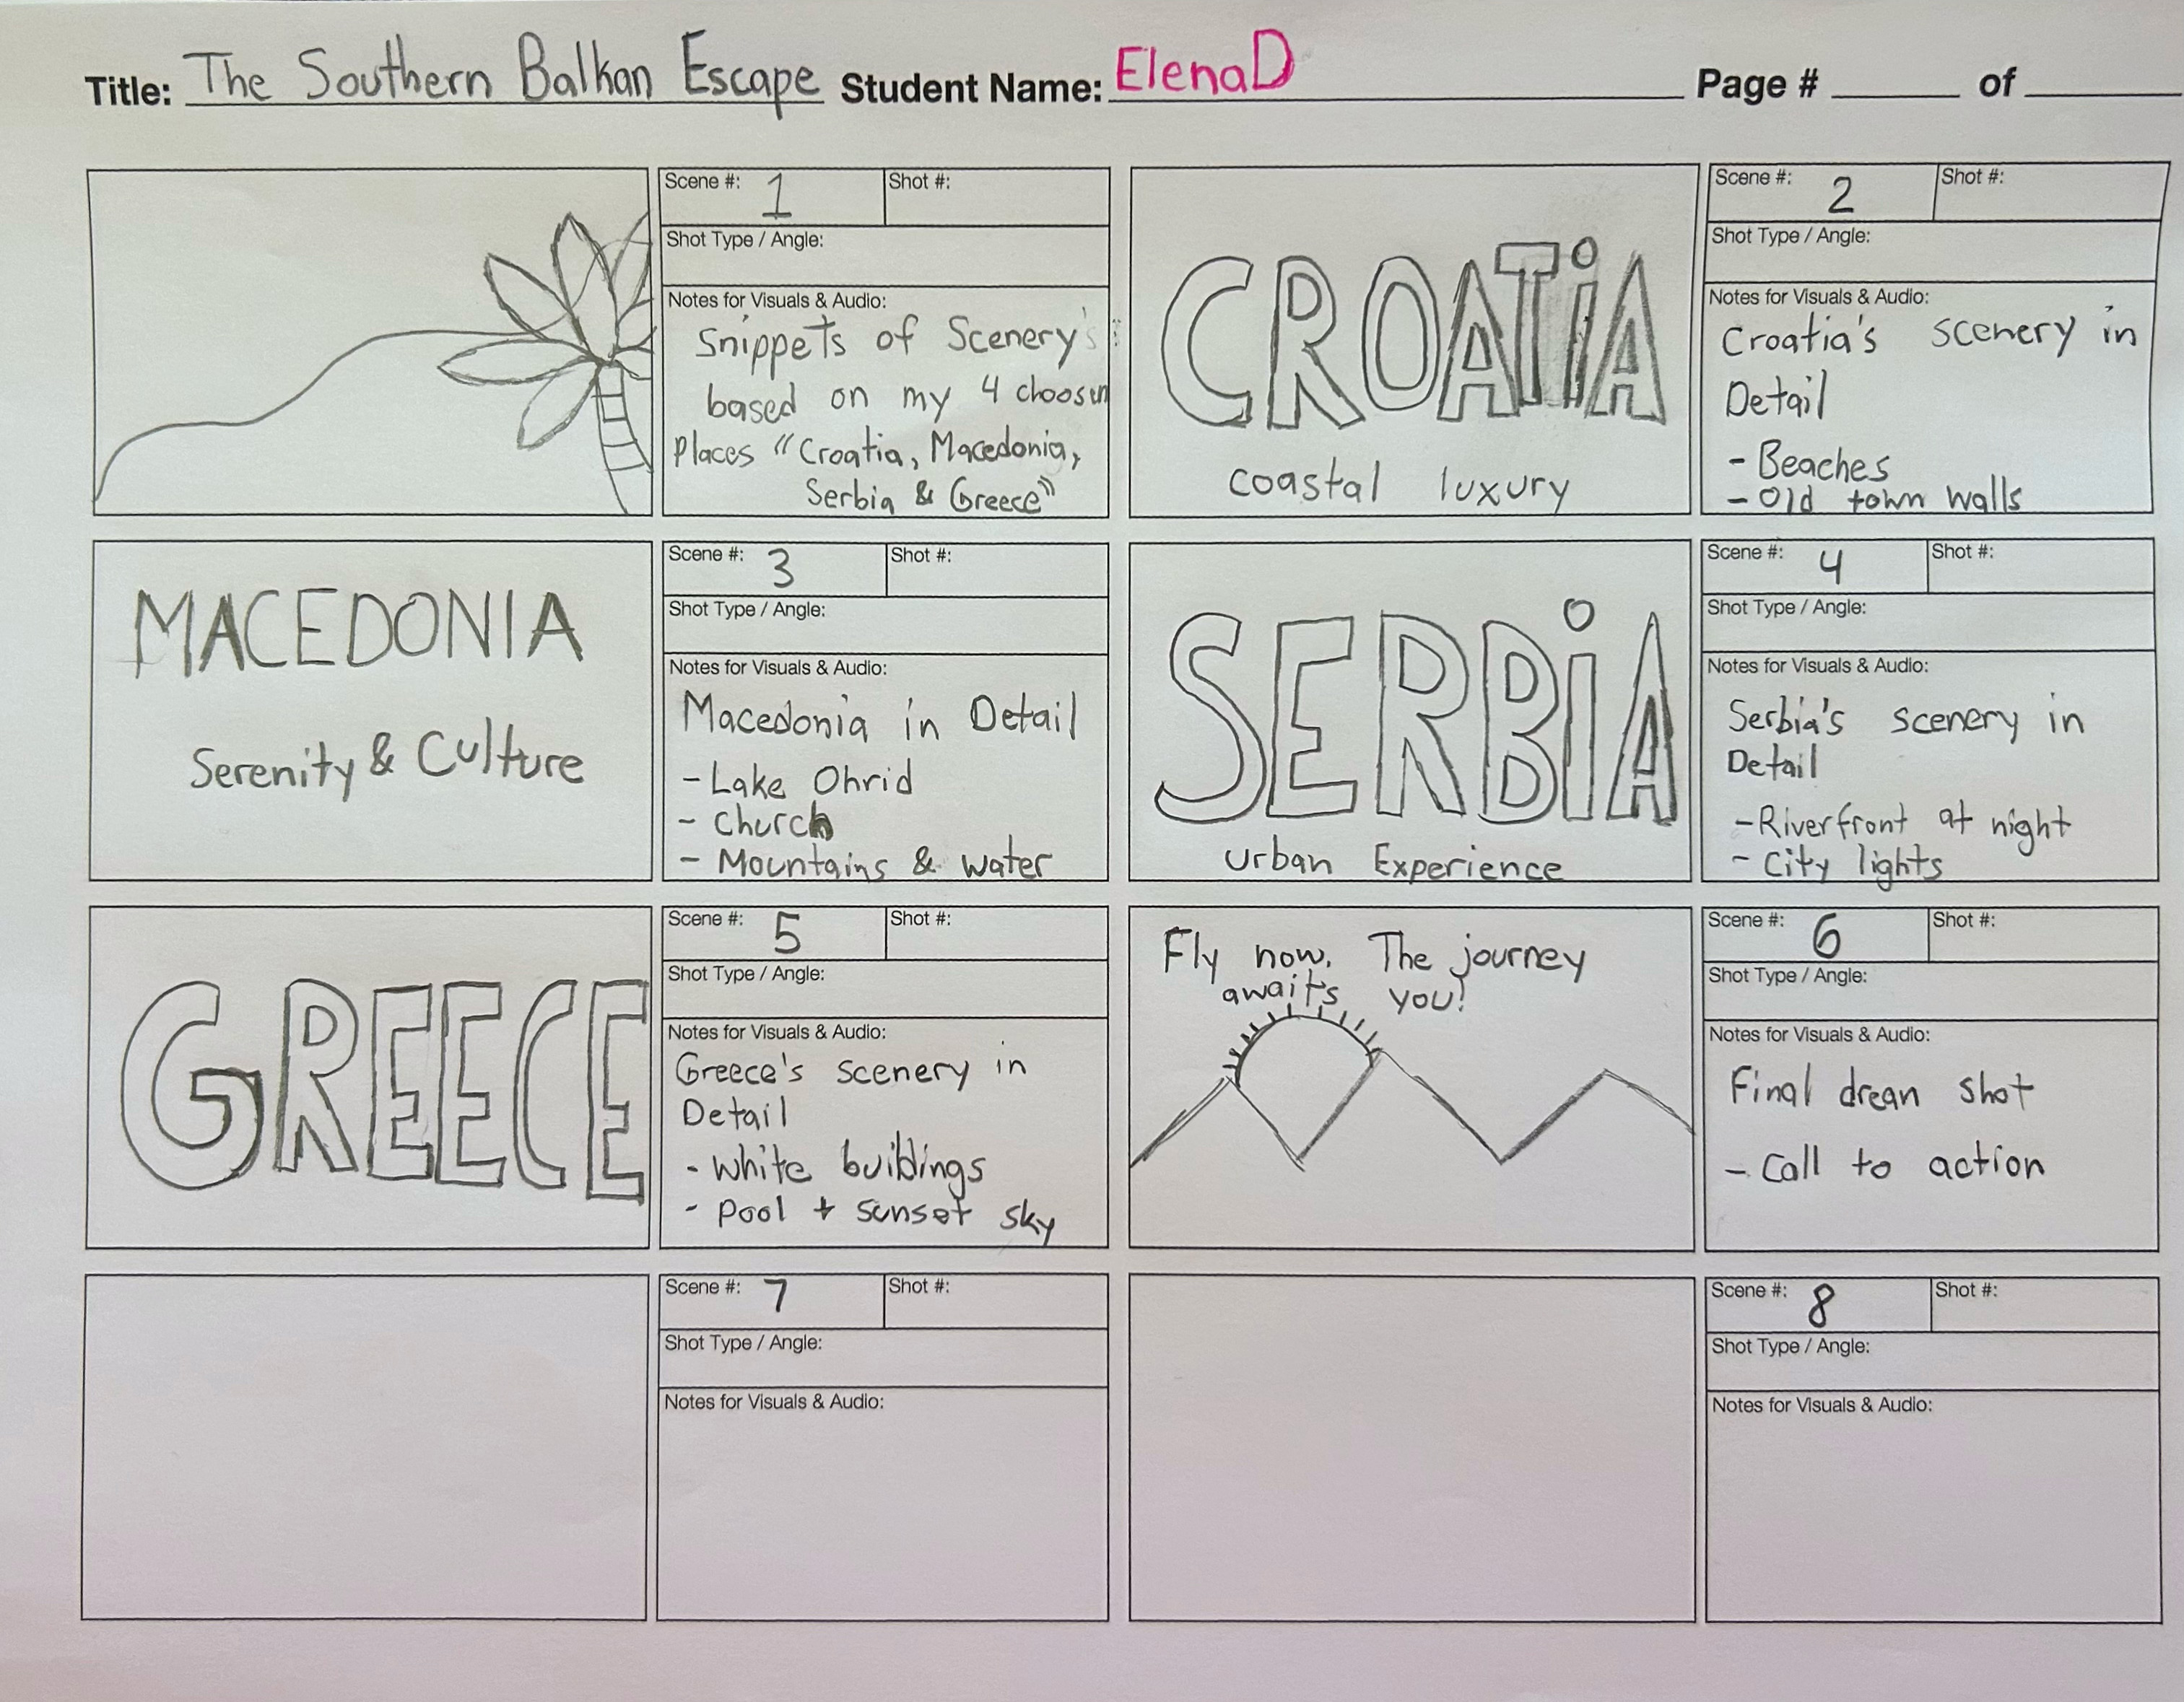 Title: The Southern Balkan Escape Student Name: ElenaD Page # ____ of ____
Scene #: 1 Shot #:
Shot Type / Angle:
Notes for Visuals & Audio:
Snippets of Scenery's
based on my 4 choosen
Places "Croatia, Macedonia,
Serbia & Greece"
CROATiA
coastal luxury
Scene #: 2 Shot #:
Shot Type / Angle:
Notes for Visuals & Audio:
Croatia's scenery in
Detail
- Beaches
- Old town walls
MACEDONIA
Serenity & Culture
Scene #: 3 Shot #:
Shot Type / Angle:
Notes for Visuals & Audio:
Macedonia in Detail
- Lake Ohrid
- Church
- Mountains & water
SERBiA
Urban Experience
Scene #: 4 Shot #:
Shot Type / Angle:
Notes for Visuals & Audio:
Serbia's scenery in
Detail
- Riverfront at night
- City lights
GREECE
Scene #: 5 Shot #:
Shot Type / Angle:
Notes for Visuals & Audio:
Greece's scenery in
Detail
- White buildings
- Pool + sunset sky
Fly now. The journey
awaits you!
Scene #: 6 Shot #:
Shot Type / Angle:
Notes for Visuals & Audio:
Final drean shot
- Call to action
Scene #: 7 Shot #:
Shot Type / Angle:
Notes for Visuals & Audio:
Scene #: 8 Shot #:
Shot Type / Angle:
Notes for Visuals & Audio: